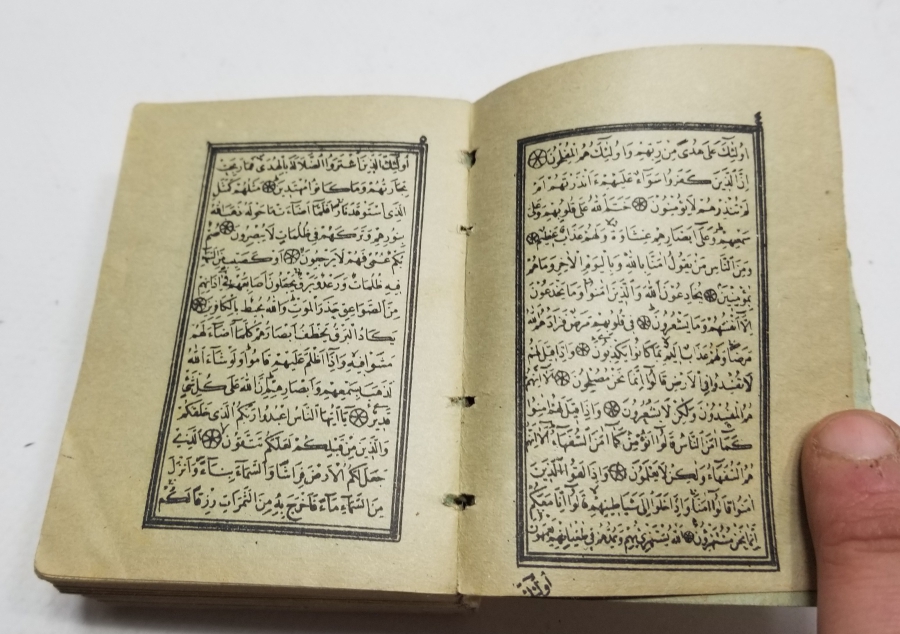 اُولٰٓئِكَ عَلٰى هُدًى مِنْ رَبِّهِمْ وَاُولٰٓئِكَ هُمُ الْمُفْلِحُونَ
اِنَّ الَّذِينَ كَفَرُوا سَوَآءٌ عَلَيْهِمْ ءَاَنْذَرْتَهُمْ اَمْ
لَمْ تُنْذِرْهُمْ لَا يُؤْمِنُونَ خَتَمَ اللّٰهُ عَلٰى قُلُوبِهِمْ وَعَلٰى
سَمْعِهِمْ وَعَلٰٓى اَبْصَارِهِمْ غِشَاوَةٌ وَلَهُمْ عَذَابٌ عَظِيمٌ
وَمِنَ النَّاسِ مَنْ يَقُولُ اٰمَنَّا بِاللّٰهِ وَبِالْيَوْمِ الْاٰخِرِ وَمَاهُمْ
بِمُؤْمِنِينَ يُخَادِعُونَ اللّٰهَ وَالَّذِينَ اٰمَنُوا وَمَا يَخْدَعُونَ
اِلَّآ اَنْفُسَهُمْ وَمَا يَشْعُرُونَ فِى قُلُوبِهِمْ مَرَضٌ فَزَادَهُمُ اللّٰهُ
مَرَضًا وَلَهُمْ عَذَابٌ اَلِيمٌ بِمَا كَانُوا يَكْذِبُونَ وَاِذَا قِيلَ لَهُمْ
لَا تُفْسِدُوا فِى الْاَرْضِ قَالُوٓا اِنَّمَا نَحْنُ مُصْلِحُونَ اَلَآ اِنَّهُمْ
هُمُ الْمُفْسِدُونَ وَلٰكِنْ لَا يَشْعُرُونَ وَاِذَا قِيلَ لَهُمْ اٰمِنُوا
كَمَآ اٰمَنَ النَّاسُ قَالُوٓا اَنُؤْمِنُ كَمَآ اٰمَنَ السُّفَهَآءُ اَلَآ اِنَّهُمْ
هُمُ السُّفَهَآءُ وَلٰكِنْ لَا يَعْلَمُونَ وَاِذَا لَقُوا الَّذِينَ
اٰمَنُوا قَالُوٓا اٰمَنَّا وَاِذَا خَلَوْا اِلٰى شَيَاطِينِهِمْ قَالُوٓا اِنَّا مَعَكُمْ
اِنَّمَا نَحْنُ مُسْتَهْزِؤُنَ اَللّٰهُ يَسْتَهْزِئُ بِهِمْ وَيَمُدُّهُمْ فِى طُغْيَانِهِمْ يَعْمَهُونَ
اُولٰٓئِكَ
اُولٰٓئِكَ الَّذِينَ اشْتَرَوُا الضَّلَالَةَ بِالْهُدٰى فَمَا رَبِحَتْ
تِجَارَتُهُمْ وَمَا كَانُوا مُهْتَدِينَ مَثَلُهُمْ كَمَثَلِ
الَّذِى اسْتَوْقَدَ نَارًا فَلَمَّآ اَضَآءَتْ مَا حَوْلَهُ ذَهَبَ اللّٰهُ
بِنُورِهِمْ وَتَرَكَهُمْ فِى ظُلُمَاتٍ لَا يُبْصِرُونَ صُمٌّ
بُكْمٌ عُمْىٌ فَهُمْ لَا يَرْجِعُونَ اَوْ كَصَيِّبٍ مِنَ السَّمَآءِ
فِيهِ ظُلُمَاتٌ وَرَعْدٌ وَبَرْقٌ يَجْعَلُونَ اَصَابِعَهُمْ فِىٓ اٰذَانِهِمْ
مِنَ الصَّوَاعِقِ حَذَرَ الْمَوْتِ وَاللّٰهُ مُحِيطٌ بِالْكَافِرِينَ
يَكَادُ الْبَرْقُ يَخْطَفُ اَبْصَارَهُمْ كُلَّمَآ اَضَآءَ لَهُمْ
مَشَوْا فِيهِ وَاِذَآ اَظْلَمَ عَلَيْهِمْ قَامُوا وَلَوْ شَآءَ اللّٰهُ
لَذَهَبَ بِسَمْعِهِمْ وَاَبْصَارِهِمْ اِنَّ اللّٰهَ عَلٰى كُلِّ شَىْءٍ
قَدِيرٌ يَآ اَيُّهَا النَّاسُ اعْبُدُوا رَبَّكُمُ الَّذِى خَلَقَكُمْ
وَالَّذِينَ مِنْ قَبْلِكُمْ لَعَلَّكُمْ تَتَّقُونَ اَلَّذِى
جَعَلَ لَكُمُ الْاَرْضَ فِرَاشًا وَالسَّمَآءَ بِنَآءً وَاَنْزَلَ
مِنَ السَّمَآءِ مَآءً فَاَخْرَجَ بِهِ مِنَ الثَّمَرَاتِ رِزْقًا لَكُمْ